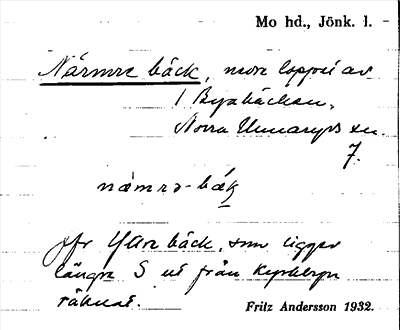 Mo hd., Jönk. l.
Närmre bäck, nedre loppet av
Byabäcken,
Norra Unnaryds sn
7.
næmrə-bæk
jfr Yttre bäck, som ligger
längre S ut från Kyrkbyn
räknat.
Fritz Andersson 1932.